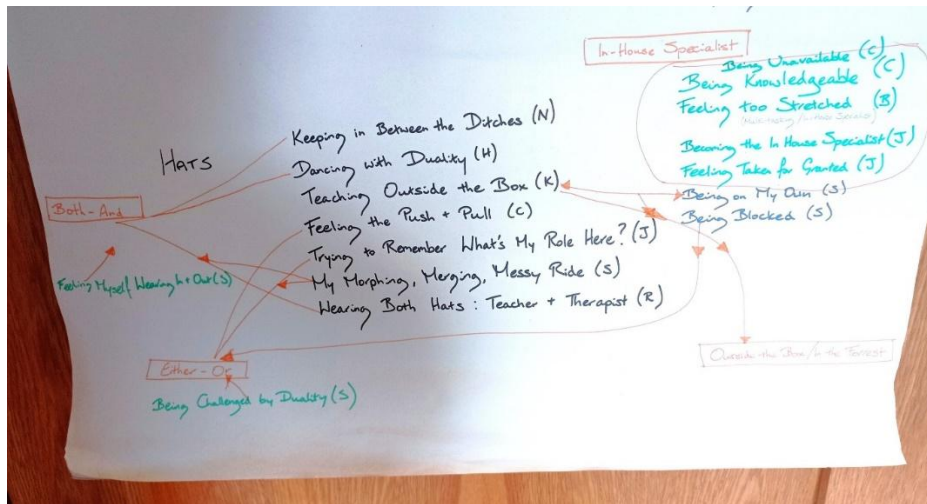 In-House Specialist
Being Unavailable (C)
Being Knowledgeable (C)
Feeling too Stretched (B)
Becoming the In House Specialist (J)
Feeling Taken for Granted (J)
Being on My Own (S)
Being Blocked (S)
HATS
Keeping in Between the Ditches (N)
Dancing with Duality (H)
Teaching Outside the Box (K)
Feeling the Push + Pull (C)
Trying to Remember What's My Role Here? (J)
My Morphing, Merging, Messy Ride (S)
Wearing Both Hats: Teacher + Therapist (R)
Both-And
Feeling Myself Wearing In + Out (S)
Either-Or
Being Challenged by Duality (S)
Outside the Box / In the Forrest